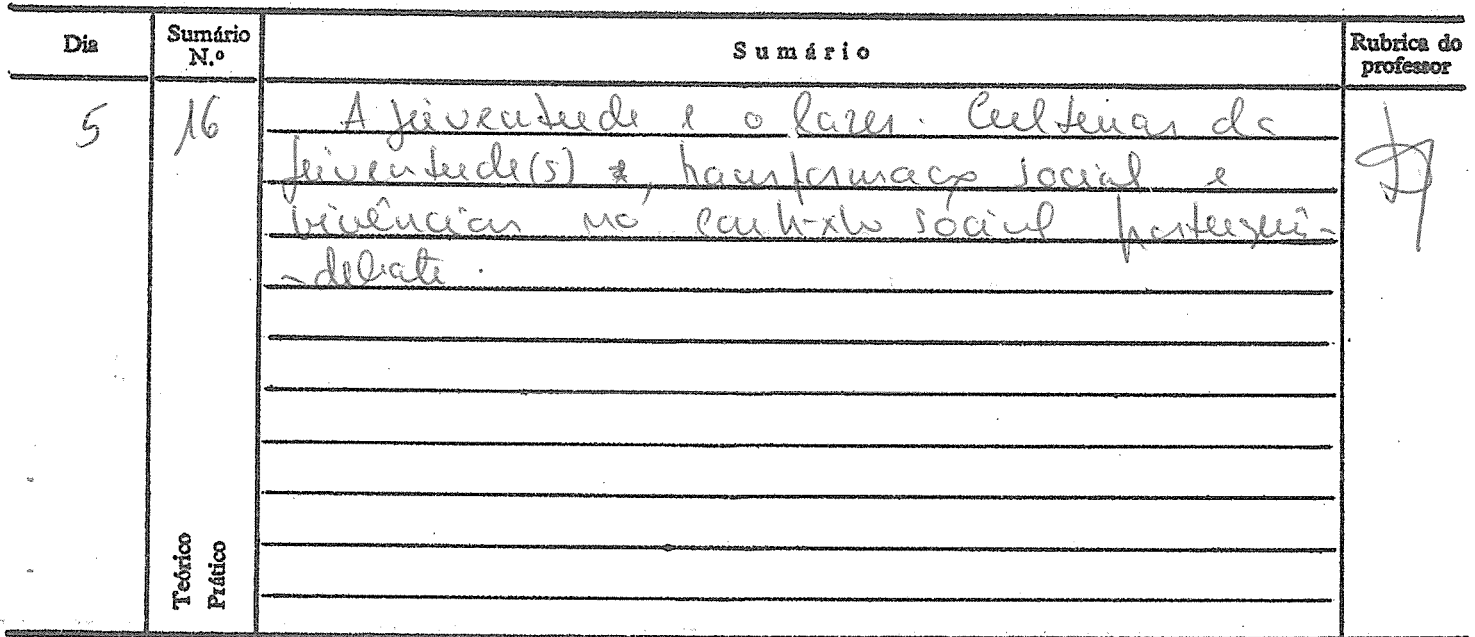 Dia
Sumário N.º
Sumário
Rubrica do professor
5
16
A juventude e o lazer. Culturas da
juventude(s), transformação social e
vivências no contexto social português
- debate.
Teórico
Prático